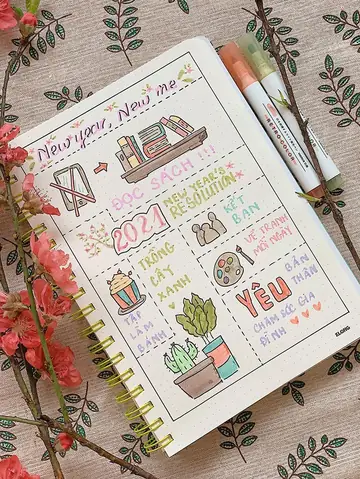 New year, New me
ĐỌC SÁCH !!!
2021
NEW YEAR'S
RESOLUTION
KẾT
BẠN
TRỒNG
CÂY
XANH
VẼ TRANH
MỖI NGÀY
TẬP
LÀM
BÁNH
YÊU
BẢN
THÂN
CHĂM SÓC GIA
ĐÌNH
KLONG